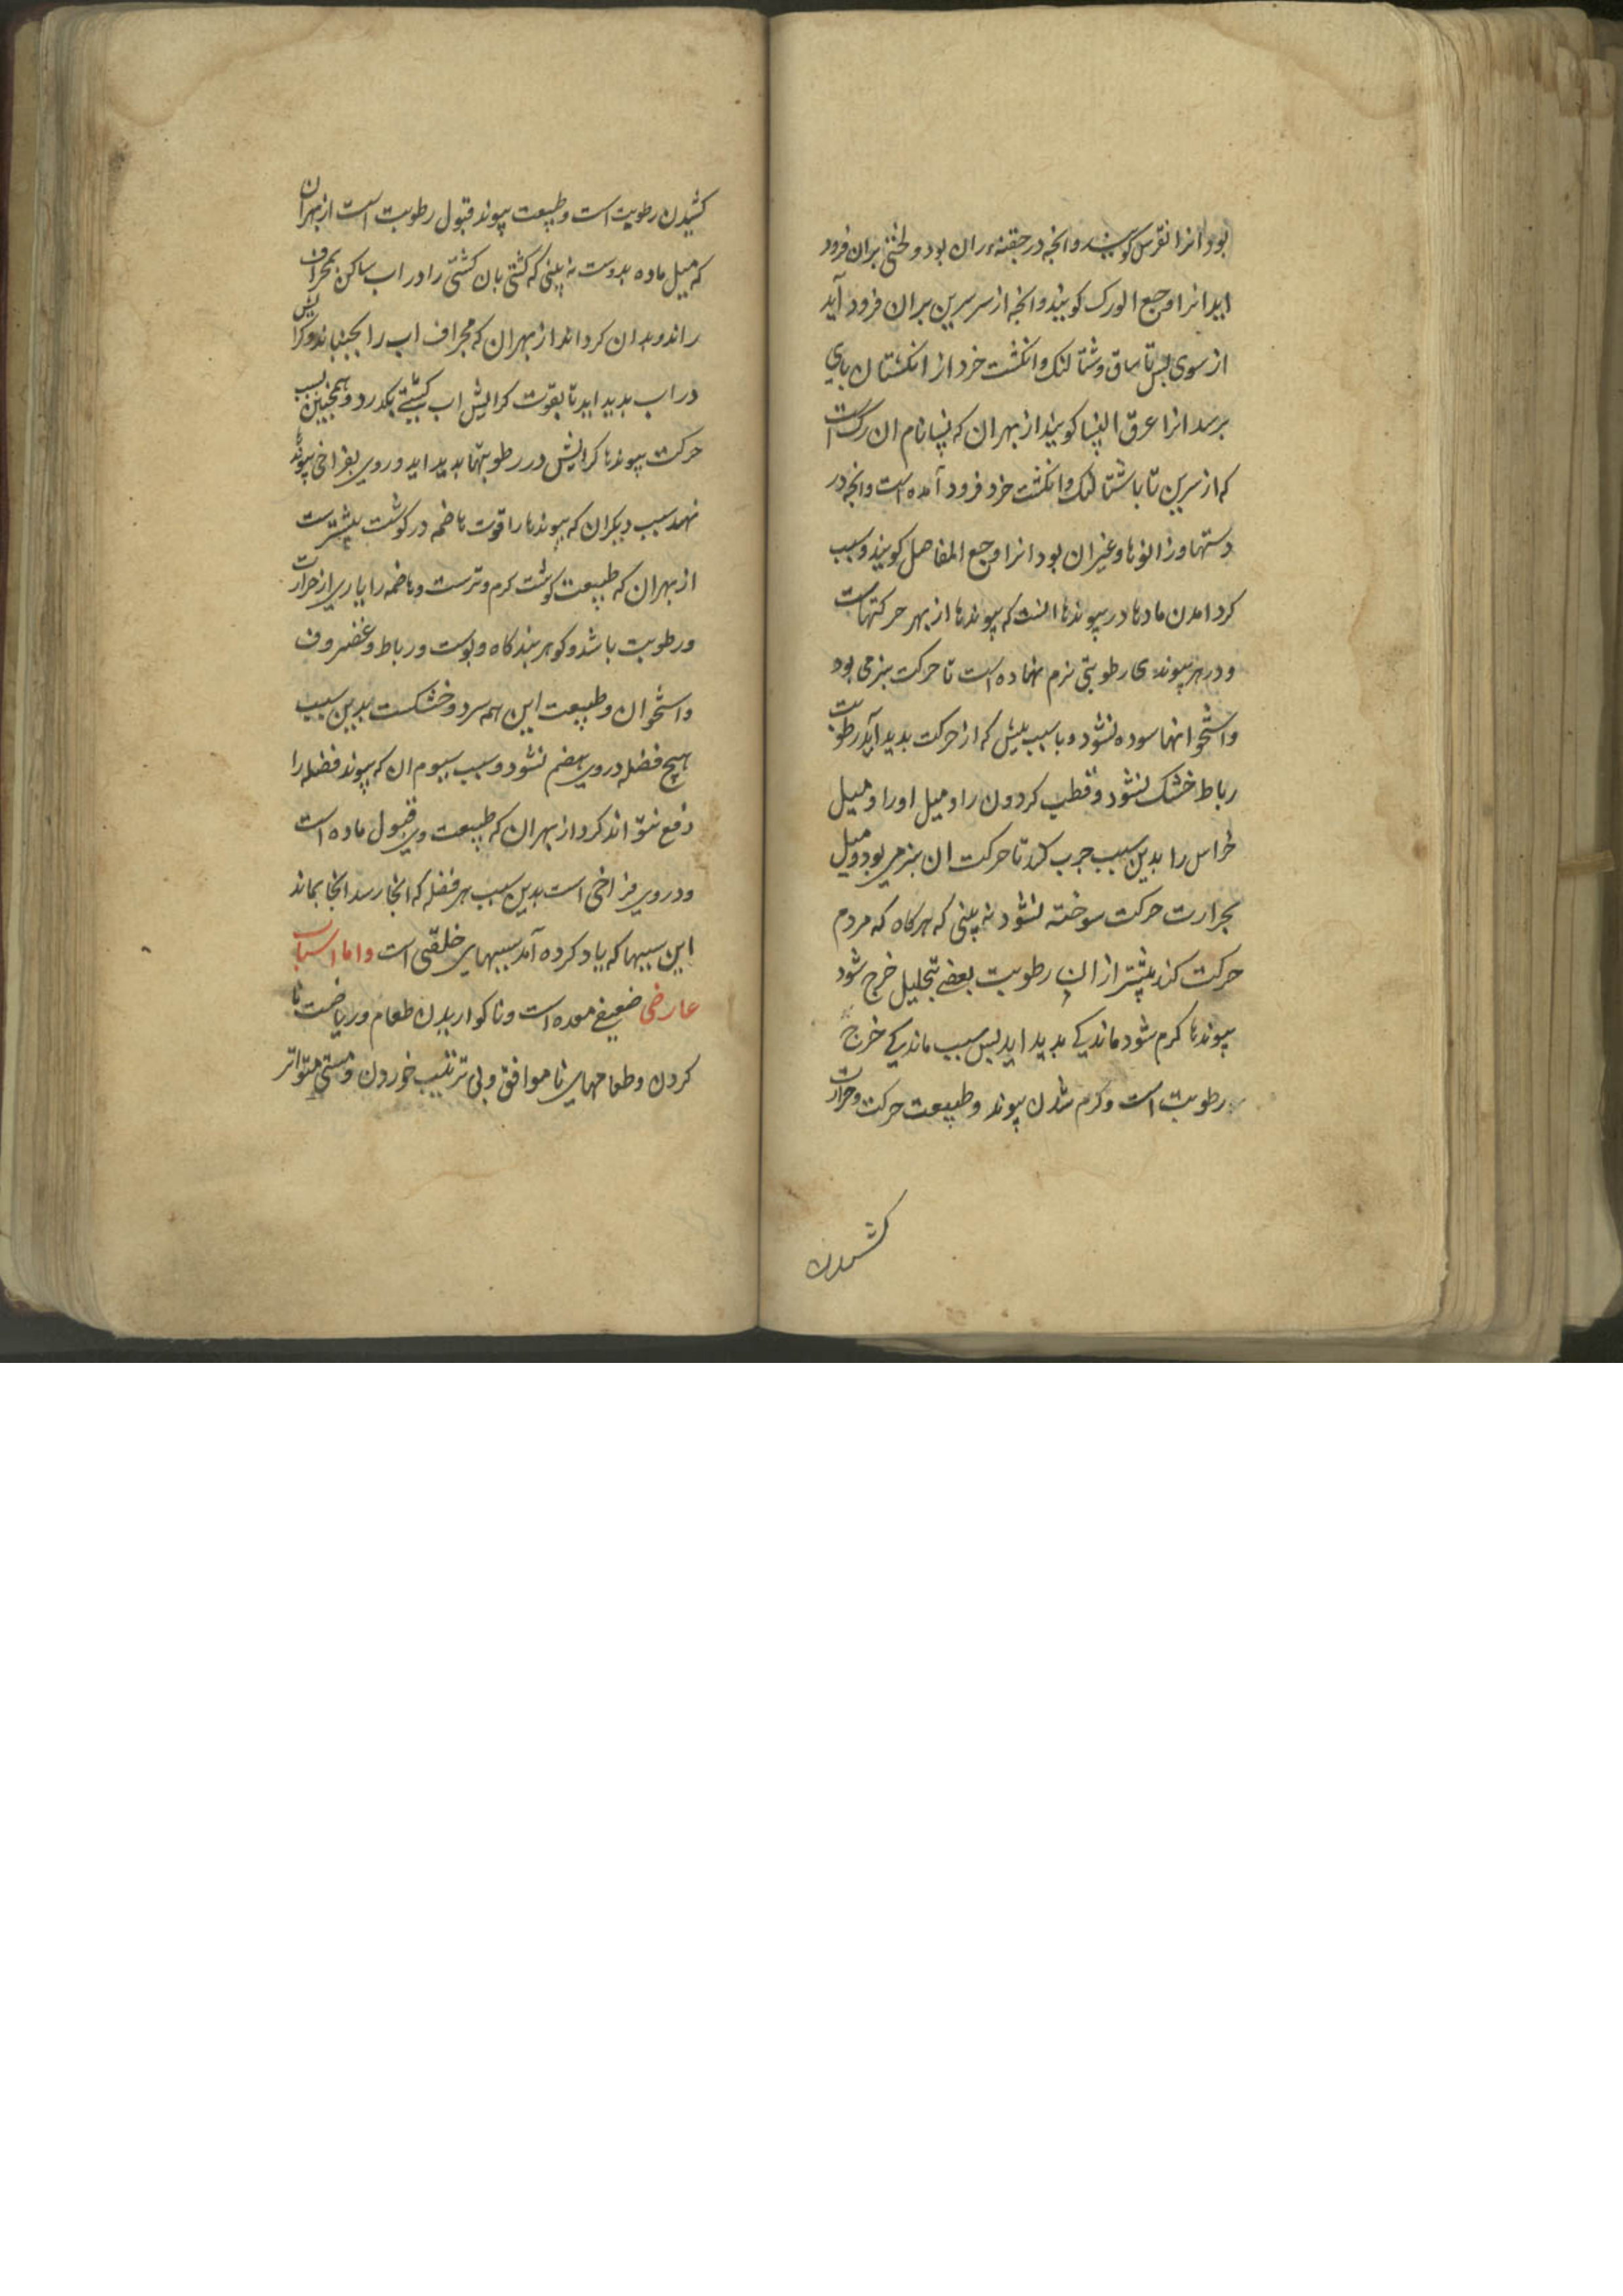 بود انرا نقرس کویند وانجه در حقنهء ران بود و لختی بران فرود
اید انرا وجع الورک کویند وانجه از سر سرین بران فرود آید
از سوی پس تا ساق و شتالنک و انکشت خرد از انکشتان پای
برسد انرا عرق النسا کویند از بهر ان که نسا نام ان رک است
که از سرین تا با شتالنک و انکشت خرد فرود آمده است وانجه در
دستها و زانوها و غیر ان بود انرا وجع المفاصل کویند و سبب
کرد امدن مادها در پیوندها انست که پیوندها از بهر حرکتهاست
و در هر پیوندی رطوبتی نرم نهاده است تا حرکت بنرمی بود
و استخوانها سوده نشود و با سبب تپش که از حرکت بدید آید رطوبت
رباط خشک نشود و قطب کردون را و میل اورا و میل
خراس را بدین سبب جرب کنند تا حرکت ان بنرمی بود و میل
بحرارت حرکت سوخته نشود نه بینی که هرکاه که مردم
حرکت کند بیشتر از ان رطوبت بعضی بتحلیل خرج شود
پیوندها کرم شود ماندکی بدید اید پس سبب ماندکی خرج
رطوبت است و کرم شدن پیوند و طبیعت حرکت و حرارت
کشیدن
کشیدن رطوبت است و طبیعت پیوند قبول رطوبت است از بهر ان
که میل ماده بدوست نه بینی که کشتی بان کشتی را در اب ساکن بمجراف
راند و بدان کرداند از بهر ان که مجراف اب را بجنباند و کرایش
در اب بدید اید تا بقوت کرایش اب کشتی بکذرد و همجنین بسبب
حرکت پیوندها کرایش در رطوبتها بدید اید و روی بفراخی پیوندها
نهد سبب دیکر ان که پیوندها را قوت هاضمه در کوشت بیشترست
از بهر ان که طبیعت کوشت کرم و ترست و هاضمه را یاری از حرارت
و رطوبت باشد و کوهر بندکاه و پوست و رباط و غضروف
و استخوان و طبیعت این همه سرد و خشکست بدین سبب
هیچ فضله در وی هضم نشود و سبب سیوم ان که پیوند فضله را
دفع نتواند کرد از بهر ان که طبیعت وی قبول ماده است
و در وی فراخی است بدین سبب هر فضله که انجا رسد انجا بماند
این سببها که یاد کرده آمد سببهای خلقتی است و اما اسباب
عارضی ضعیفی معده است و ناکواریدن طعام و ریاضت نا
کردن و طعامهای ناموافق و بی ترتیب خوردن و مستی متواتر